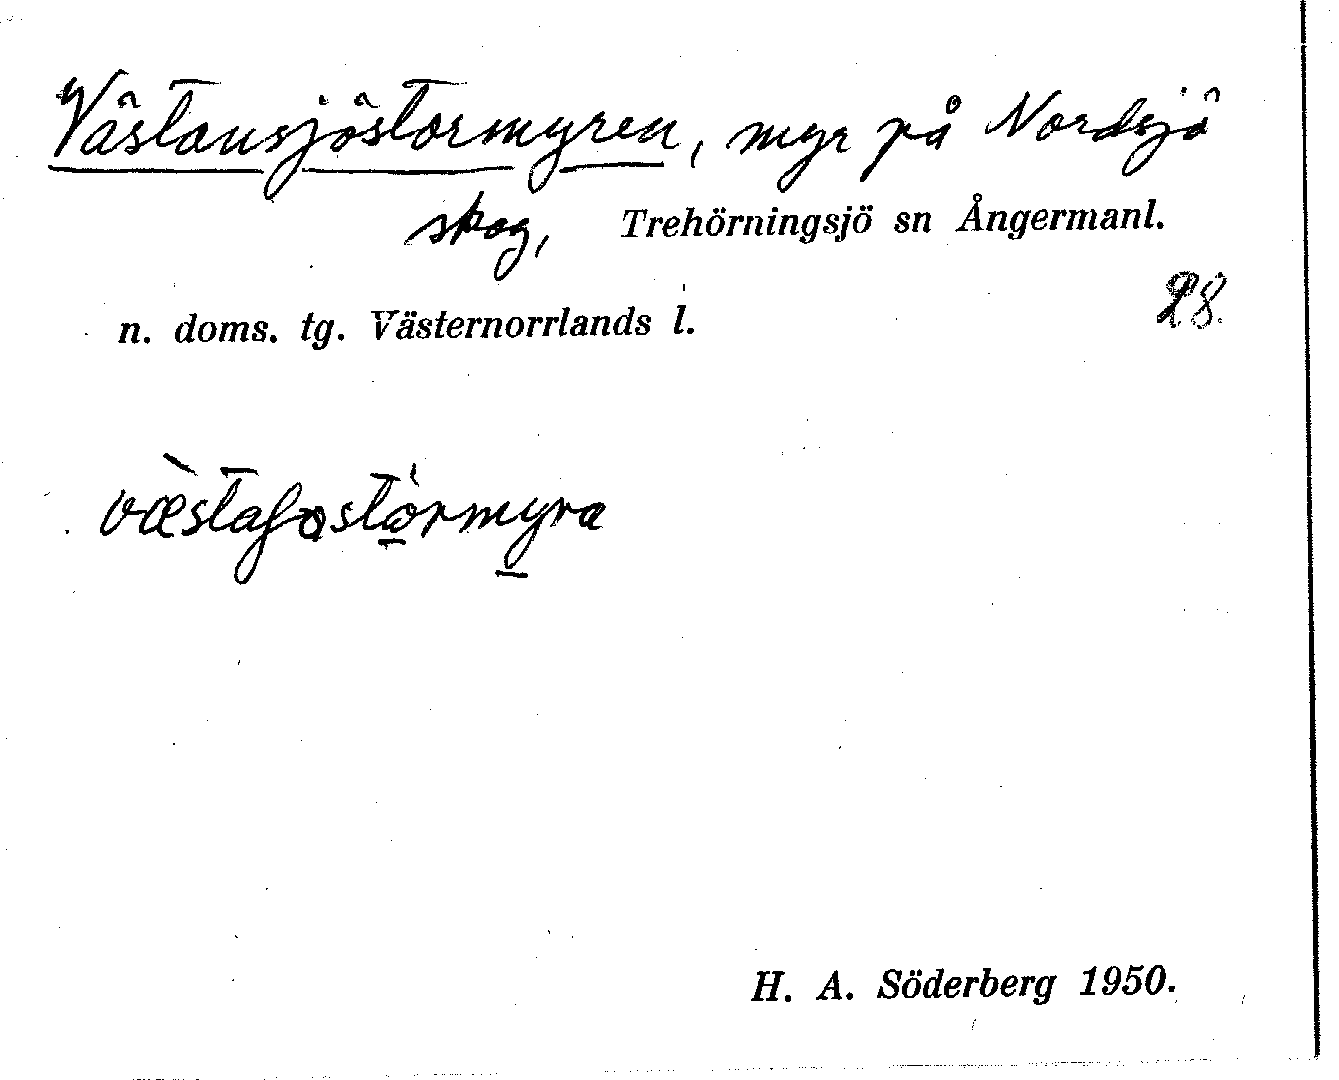 Västansjöstormyren, myr på Nordsjö
skog, Trehörningsjö sn Ångermanl.
28.
n. doms. tg. Västernorrlands l.
H. A. Söderberg 1950.